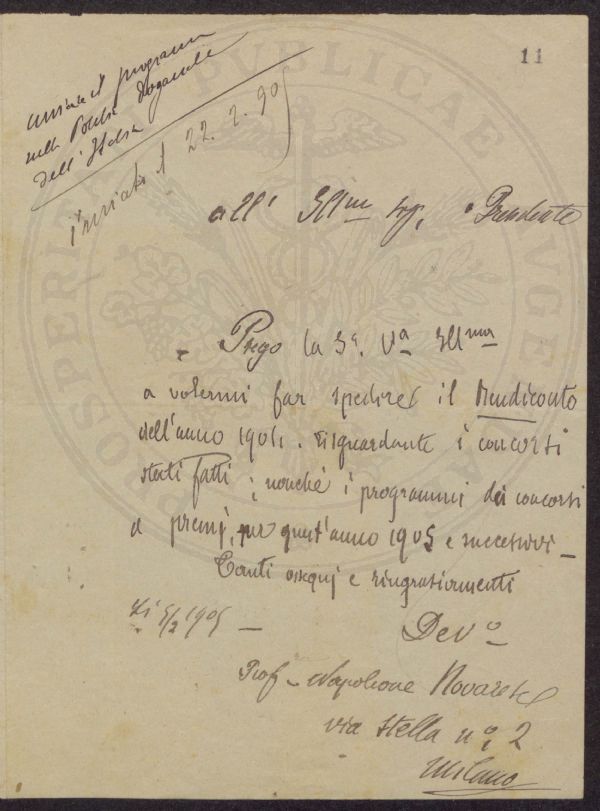 11
inviare il programma
sulla Polizia Doganale
dell'Italia
inviato il 22.2.905
all' Ill.mo Sig. Presidente
Prego la S.a V.a Ill.ma
a volermi far spedire il Rendiconto
dell'anno 1904. risguardante i concorsi
stati fatti; nonché i programmi dei concorsi
a premj, per quest'anno 1905 e successivi -
Tanti ossequj e ringraziamenti
Li 5/2 1905 -
Dev.o
Prof. Napoleone Novarese
via Stella n.o 2
Milano
PROSPERITATI PUBLICAE AUGENDAE